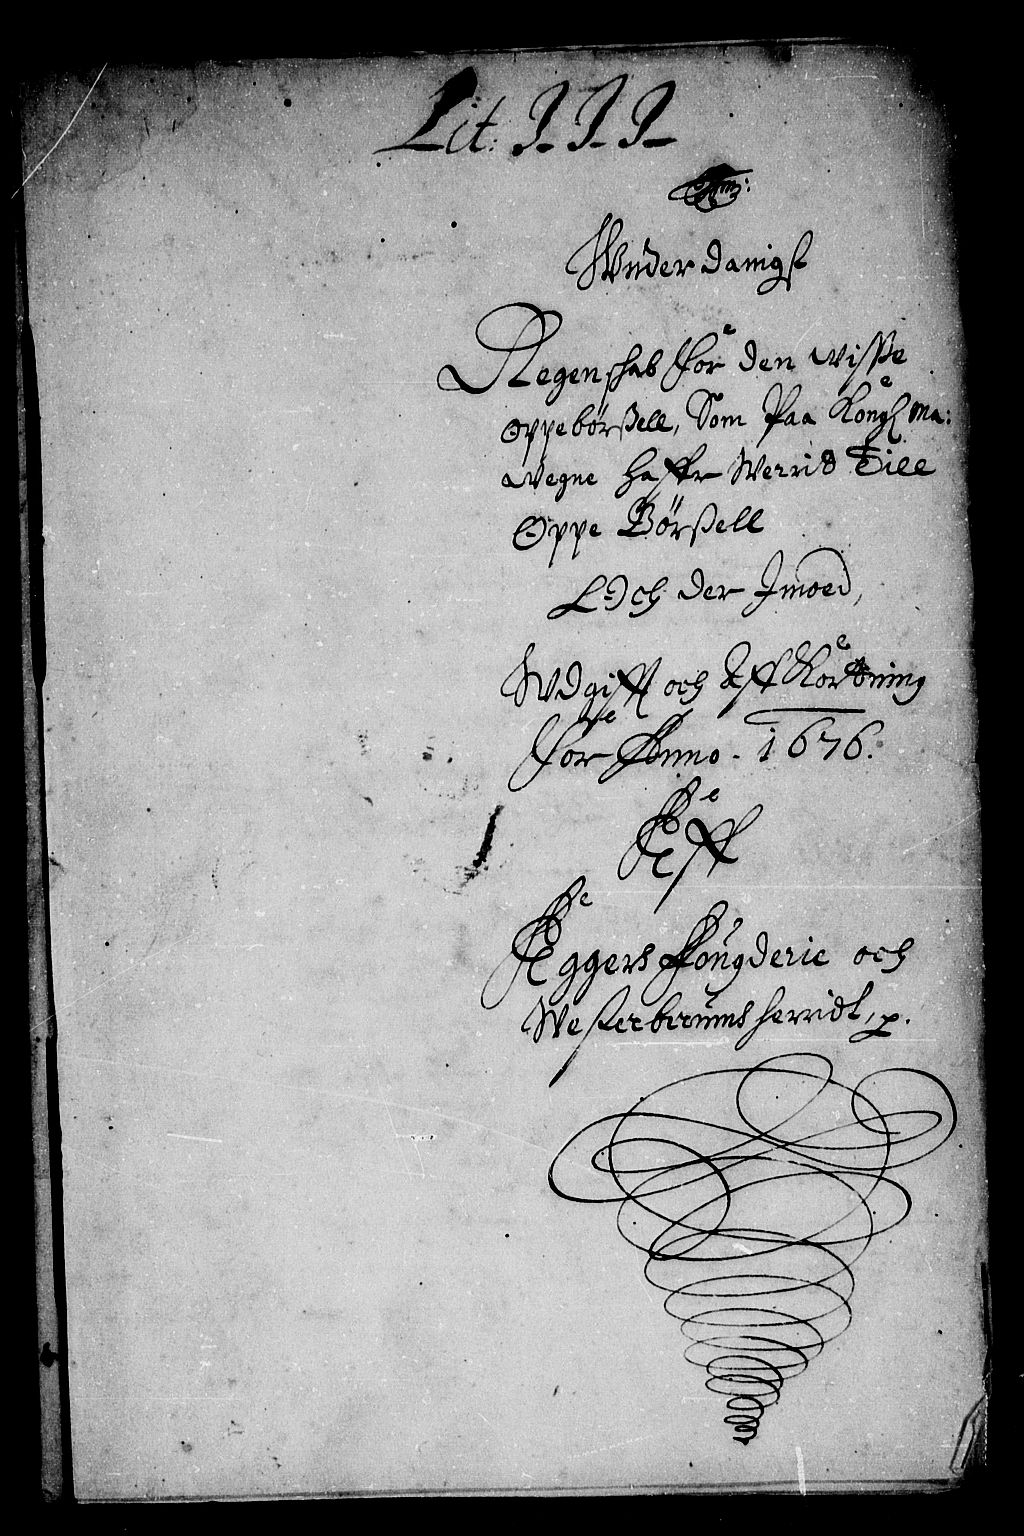 Lit: III
Wnderdanigst
Regenschab for den Wisse
Oppebørsell, Som Paa Kongl Ma:
Wegne haffr Werrid Till
Oppe Børsell
och der Imoed,
Wdgifft och Aff Kortning
for Anno. 1676.
Aff
Aggers fougderie och
Westerberums herridt, p.